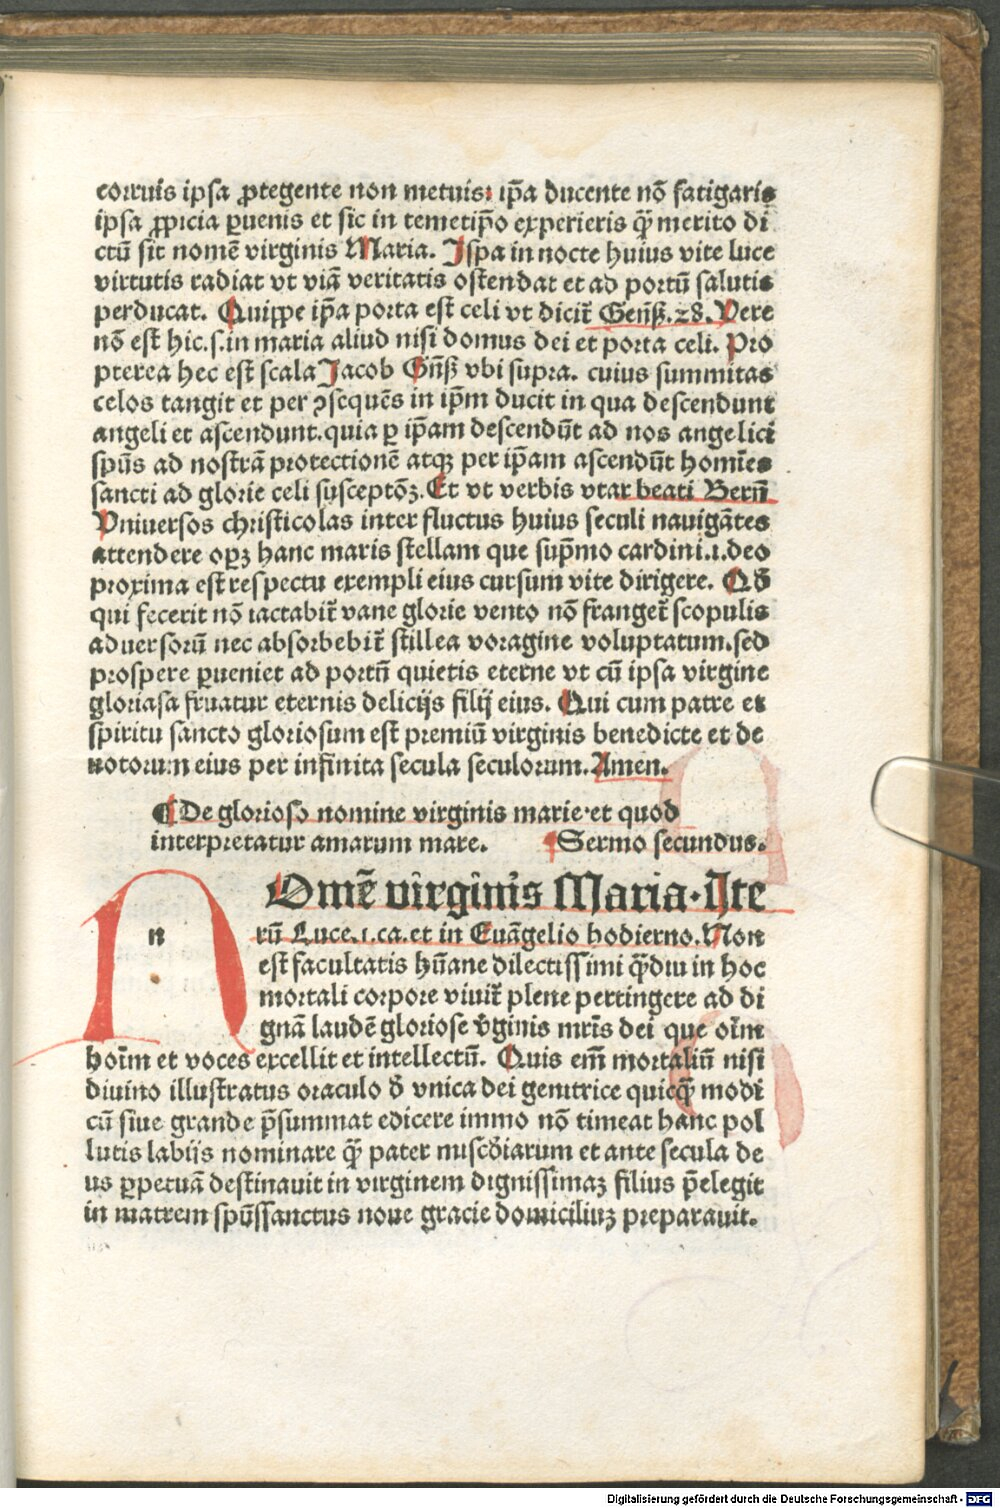 corruis ipsa ꝓtegente non metuis: ip̄a ducente nō fatigaris
ipsa ꝓpicia ꝑuenis et sic in temetip̄o experieris q̄ merito di
ctū sit nomē virginis Maria. Ispa in nocte huius vite luce
virtutis radiat vt viā veritatis ostendat et ad portū salutis
perducat. Quippe ip̄a porta est celi vt dicit̄ Gen̄ß.28. Vere
nō est hic.s.in maria aliud nisi domus dei et porta celi. Pro
pterea hec est scala Jacob Gn̄ß vbi supra. cuius summitas
celos tangit et per ꝯsequēs in ip̄m ducit in qua descendunt
angeli et ascendunt.quia ꝑ ip̄am descendūt ad nos angelici
spūs ad nostrā protectionē atqꝫ per ip̄am ascendūt homīes
sancti ad glorie celi susceptōꝫ.Et vt verbis vtar beati Bern̄
Vniuersos christicolas inter fluctus huius seculi nauigātes
attendere opꝫ hanc maris stellam que sup̄mo cardini.i.deo
proxima est respectu exempli eius cursum vite dirigere. Qđ
qui fecerit nō iactabit̄ vane glorie vento nō franget̄ scopulis
aduersorū nec absorbebit̄ stillea voragine voluptatum.sed
prospere ꝑueniet ad portū quietis eterne vt cū ipsa virgine
gloriasa fruatur eternis delicijs filij eius. Qui cum patre et
spiritu sancto gloriosum est premiū virginis benedicte et de
uotorum eius per infinita secula seculorum.Amen.
¶De glorioso nomine virginis marie·et quod
interpretatur amarum mare. ¶Sermo secundus.
n
Omē virginis Maria·Ite
rū Luce.i.ca.et in Euāgelio hodierno.Non
est facultatis hūane dilectissimi q̄diu in hoc
mortali corpore viuit̄ plene pertingere ad di
gnā laudē gloriose v̄ginis mr̄is dei que oīm
hoīm et voces excellit et intellectū. Quis em̄ mortaliū nisi
diuino illustratus oraculo đ vnica dei genitrice quicq̄ modi
cū siue grande p̄summat edicere immo nō timeat hanc pol
lutis labijs nominare q̄ pater miscđiarum et ante secula de
us ꝑpetuā destinauit in virginem dignissimaꝫ filius p̄elegit
in matrem spūssanctus noue gracie domiciliuꝫ preparauit.
Digitalisierung gefördert durch die Deutsche Forschungsgemeinschaft - DFG